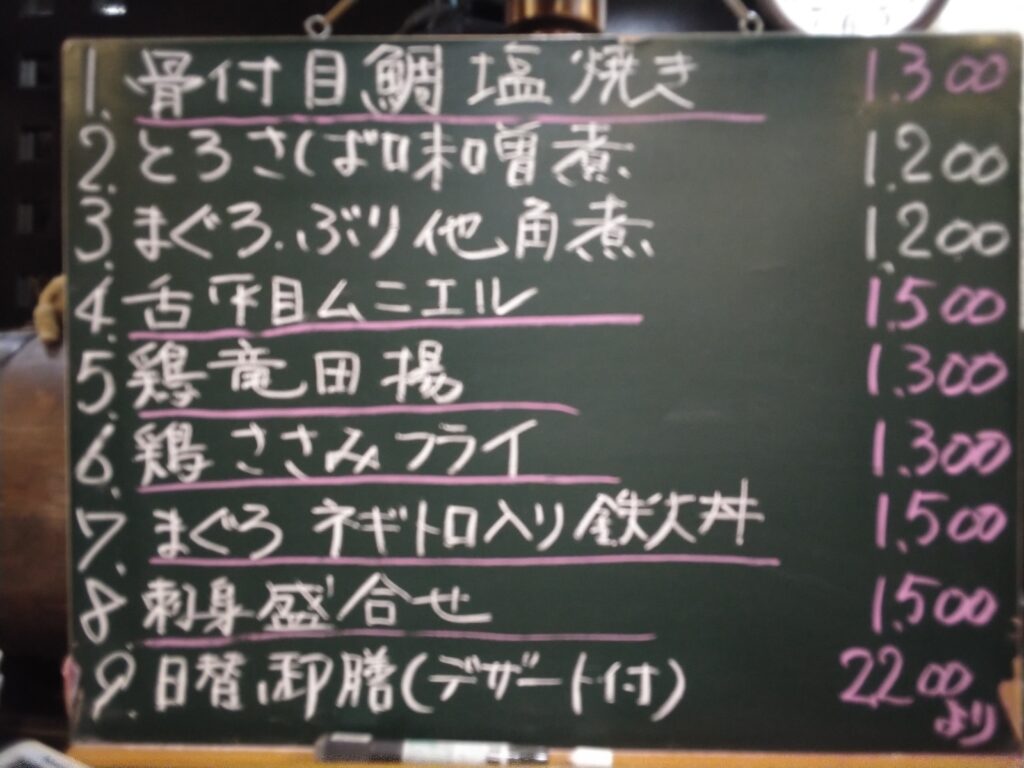 1. 骨付目鯛塩焼き 1.300
2. とろさば味噌煮 1.200
3. まぐろ.ぶり他角煮 1.200
4. 舌平目ムニエル 1.500
5. 鶏竜田揚 1.300
6. 鶏ささみフライ 1.300
7. まぐろネギトロ入り鉄火丼 1.500
8. 刺身盛合せ 1.500
9. 日替御膳(デザート付) 2200
より